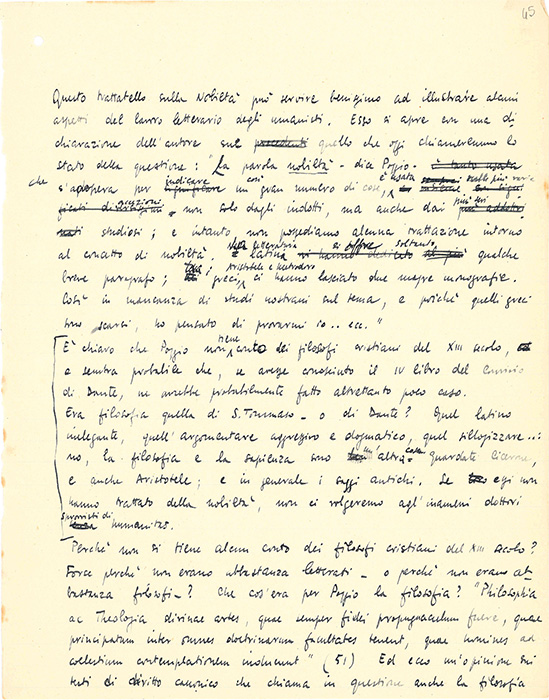 45
Questo trattatello sulla Nobiltà può servire benissimo ad illustrare alcuni
aspetti del lavoro letterario degli umanisti. Esso si apre con una di
chiarazione dell'autore sul precedenti quello che oggi chiameremmo lo
stato della questione: "La parola nobiltà - dice Poggio - è tanto usata
che s'adopera per significare indicare così un gran numero di cose, è usata sempre nelle più varie
non solo dagli indotti, ma anche dai più seri
studiosi; e intanto, non possediamo alcuna trattazione intorno
al concetto di nobiltà. Nella letteratura latina si offre soltanto qualche
breve paragrafo; greci, Aristotele e ci hanno lasciato due magre monografie.
Così in mancanza di studi nostrani sul tema, e poiché quelli greci
sono scarsi, ho pensato di provarmi io.. ecc."
È chiaro che Poggio non tiene conto dei filosofi cristiani del XIII secolo,
e sembra probabile che, se avesse conosciuto il IV libro del Convivio
di Dante, ne avrebbe probabilmente fatto altrettanto poco caso.
Era filosofia quella di S. Tommaso - o di Dante? Quel latino
inelegante, quell'argomentare aggressivo e dogmatico, quel sillogizzare..:
no, la filosofia e la sapienza sono altra cosa guardate Cicerone,
e anche Aristotele; e in generale i saggi antichi. Se essi non
hanno trattato della nobiltà, non ci volgeremo agl'inameni dottori
sprovvisti di humanitas.
Perché non si tiene alcun conto dei filosofi cristiani del XIII secolo?
Forse perché non erano abbastanza letterati - o perché non erano ab
bastanza filosofi-? Che cos'era per Poggio la filosofia? "Philosophia
ac Theologia divinae artes, quae semper fidei propugnaculum fuere, quae
principatum inter omnes doctrinarum facultates tenent, quae homines ad
coelestium contemplationem inducunt" (51) Ed ecco un'opinione sui
testi di diritto canonico che chiama in questione anche la filosofia